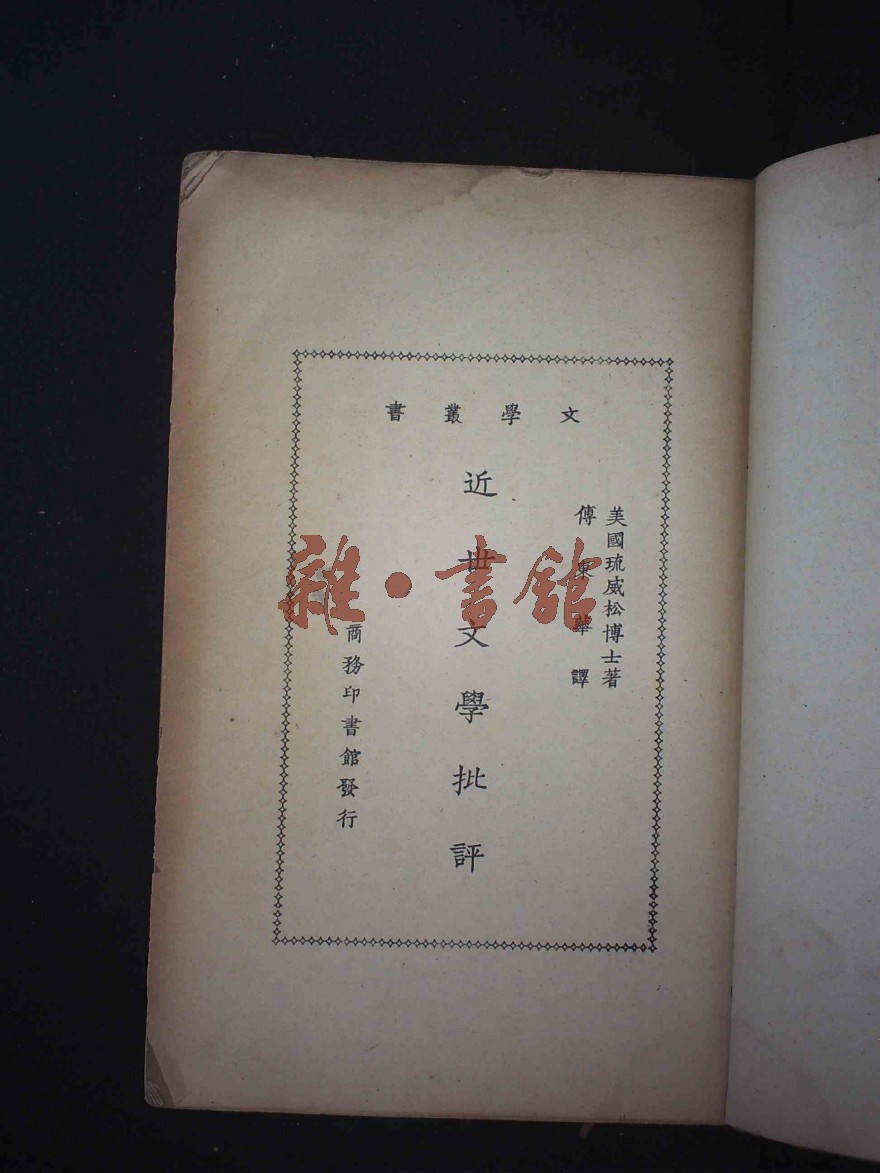 文學叢書
美國琉威松博士著
傅東華譯
近世文學批評
商務印書館發行
雜·書館